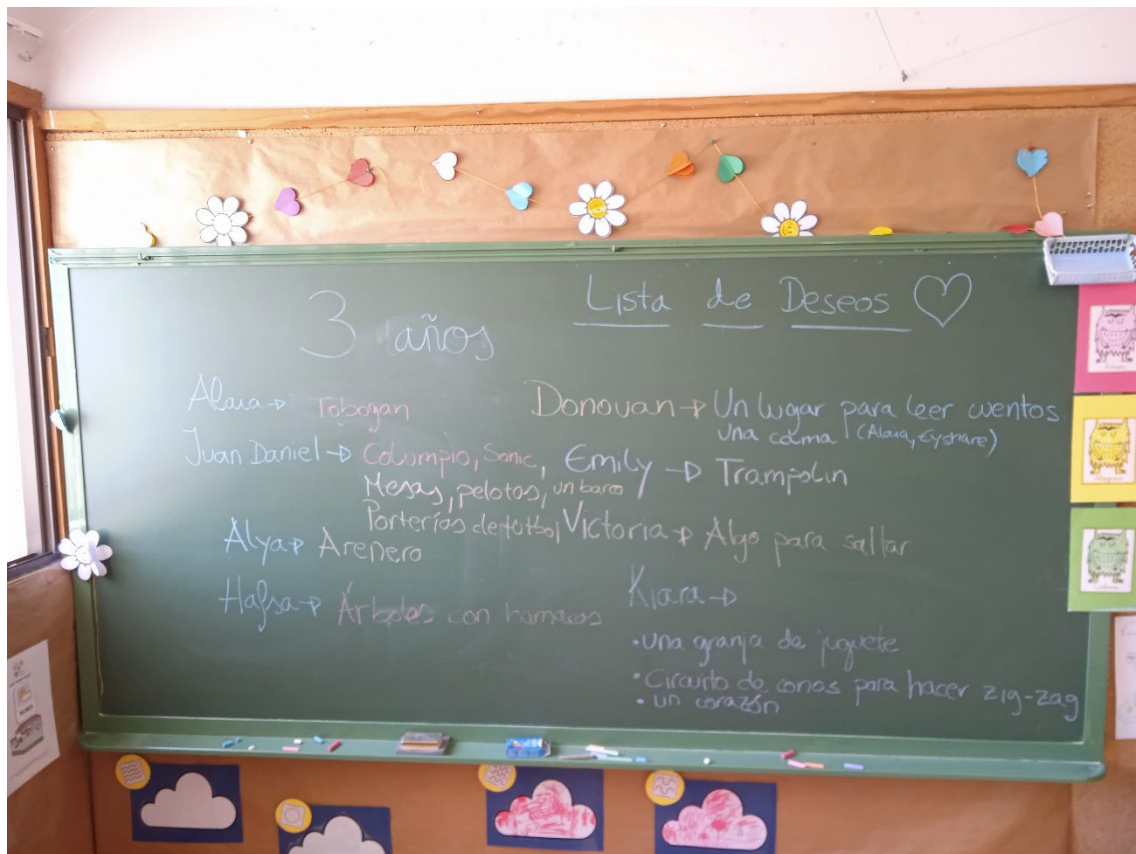 3 años
Lista de Deseos
Alaia → Tobogan
Juan Daniel → Columpio, Sonic,
Mesas, pelotas, un barco
Porterías de fútbol
Alya → Arenero
Hafsa → Árboles con hamacas
Donovan → Un lugar para leer cuentos
una cama (Alaia,
Emily → Trampolin
Victoria → Algo para saltar
Kiara →
• Una granja de juguete
• Circuito de conos para hacer zig-zag
• un corazón